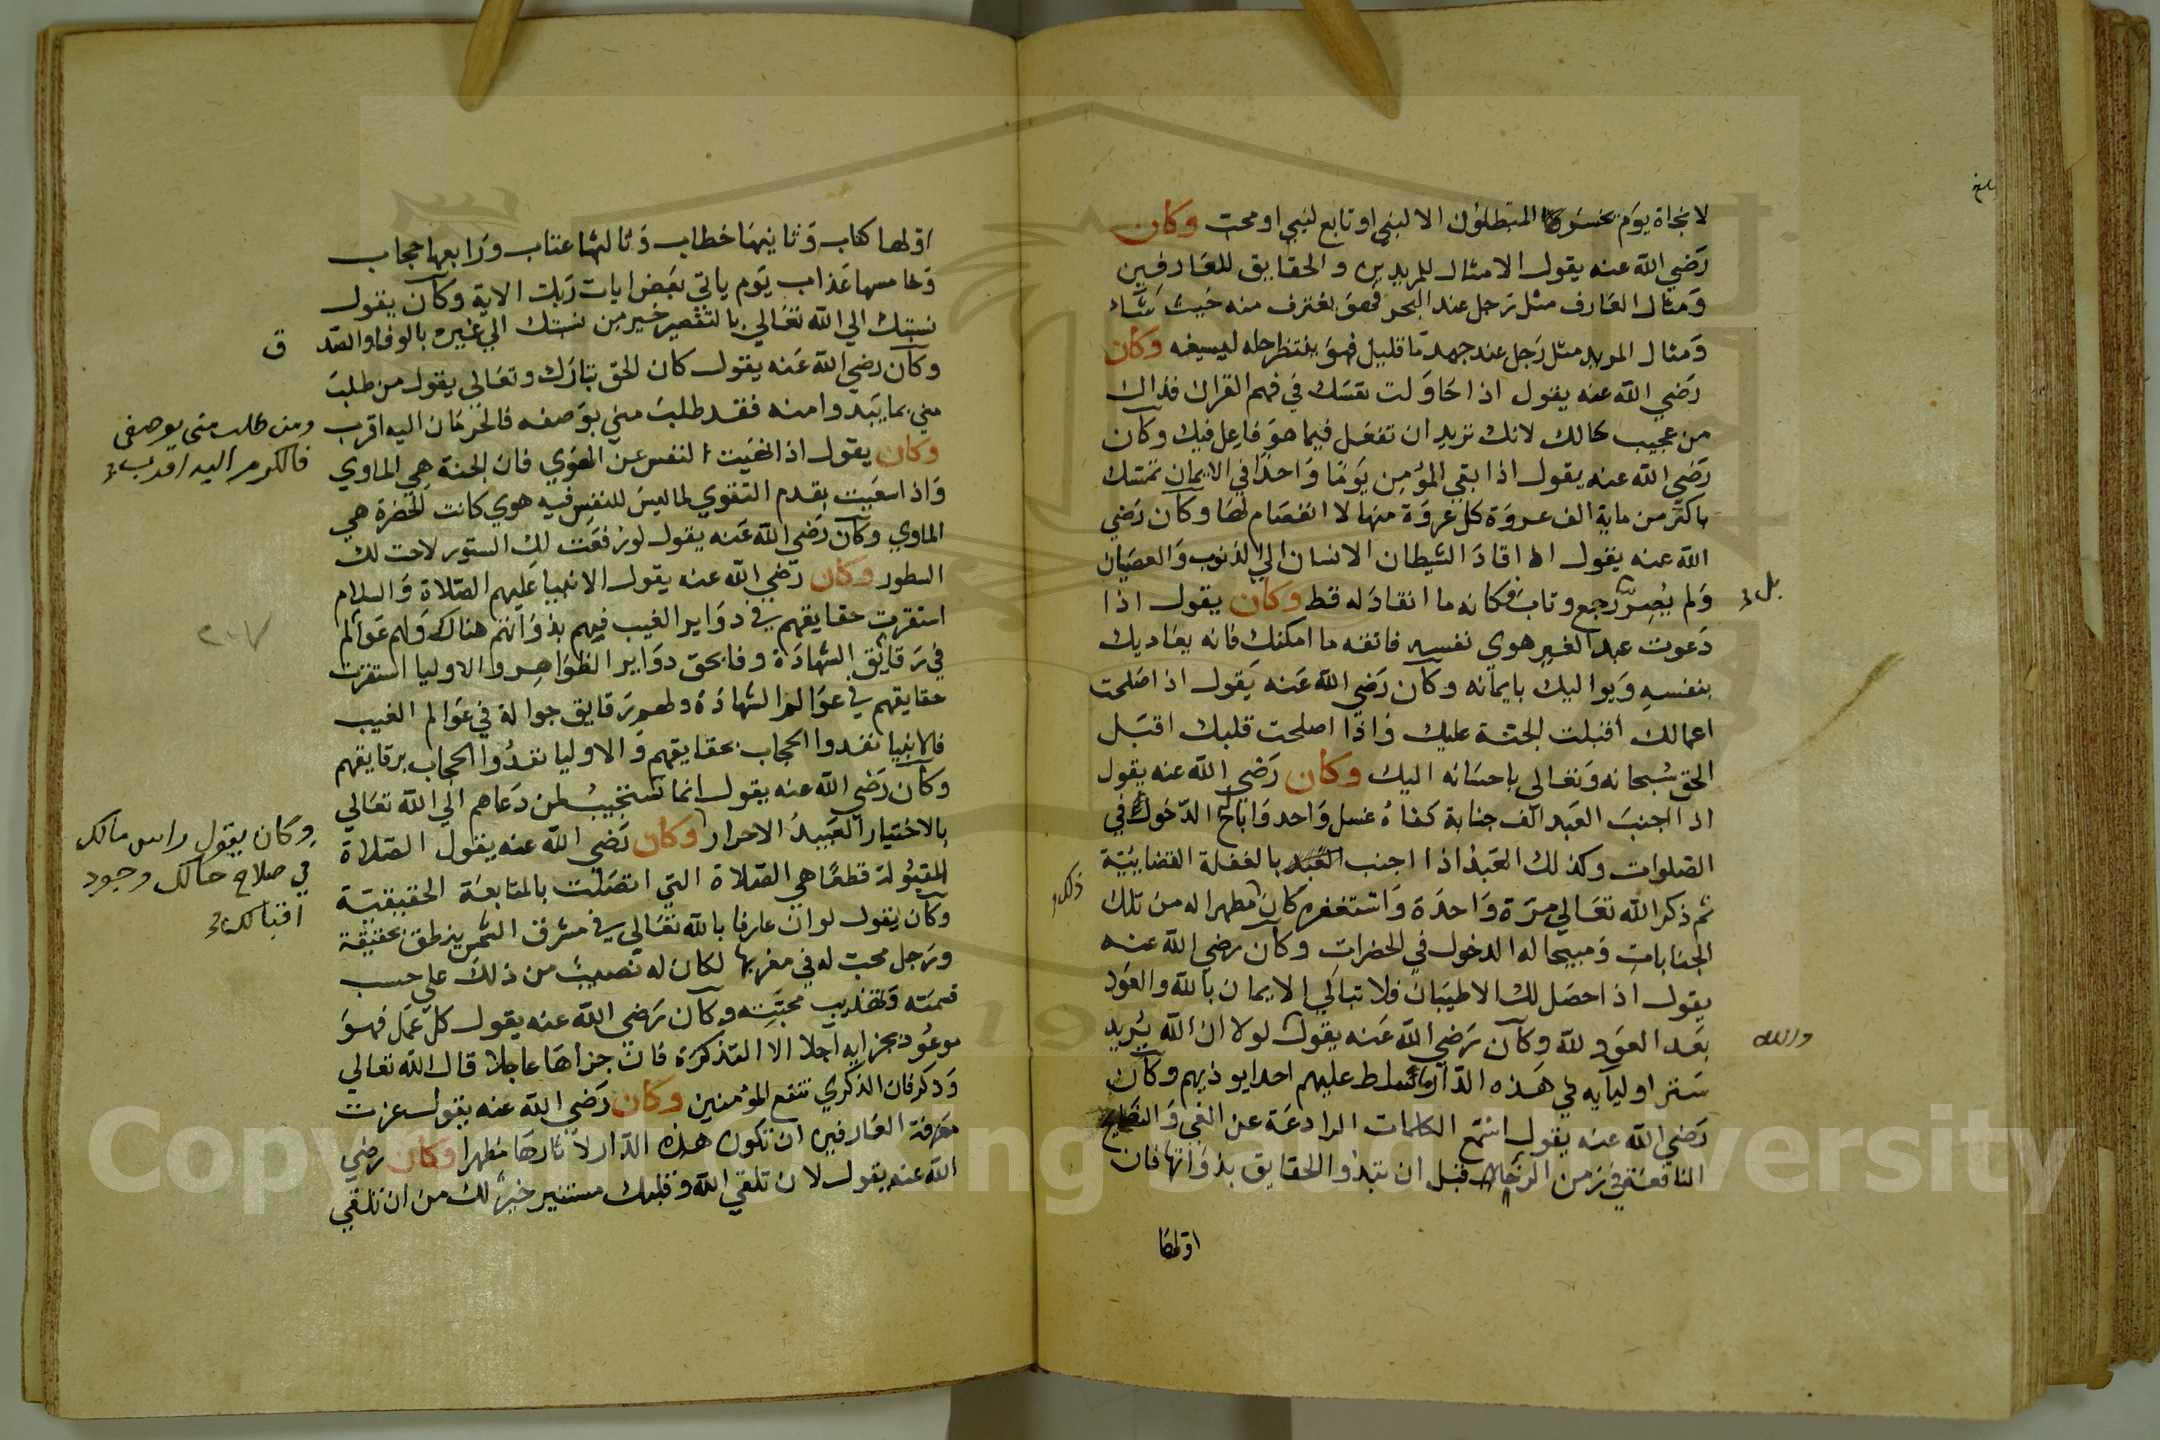 لا نجاة يوم يخسر المبطلون الا لنبي او تابع لنبي او محب وكان
رضي الله عنه يقول الامثال للمريدين والحقايق للعارفين
ومثال العارف مثل رجل عند البحر فهو يغترف منه حيث شاء
ومثال المريد مثل رجل عند جهد ما قليل فهو ينتظر حله ليسيغه وكان
رضي الله عنه يقول اذا حاولت نفسك في فهم القران فذاك
من عجيب حالك لانك تريد ان تفعل فيما هو فاعل فيك وكان
رضي الله عنه يقول اذا بقي المؤمن يوما واحدا في الايمان تمسك
باكثر من ماية الف عروة كل عروة منها لا انفصام لها وكان رضي
الله عنه يقول اذا قاد الشيطان الانسان الي الذنوب والعصيان
ولم يصر بل رجع وتاب فكانه ما انقاد له قط وكان يقول اذا
دعوت عبد الغير هوي نفسه فاتقه ما امكنك فانه يعاديك
بنفسه ويواليك بايمانه وكان رضي الله عنه يقول اذا صلحت
اعمالك اقبلت الجنة عليك واذا اصلحت قلبك اقبل
الحق سبحانه وتعالي باحسانه اليك وكان رضي الله عنه يقول
اذا اجنب العبد الف جنابة كفاه غسل واحد واباح الدخول في
الصلوات وكذلك العبد اذا اجنب بالغفلة
ثم ذكر الله تعالي مرة واحدة واستغفره كان ذلك مطهرا له من تلك
الجنابات ومبيحا له الدخول في الحضرات وكان رضي الله عنه
يقول اذا حصل لك الاطيبان فلا تبالي الايمان بالله والعود
بعد العود لله وكان رضي الله عنه يقول لولا ان الله يريد
ستر اوليايه في هذه الدار ما سلط عليهم احدا يوذيهم وكان
رضي الله عنه يقول استمع الكلمات الرادعة عن الغي والنصايح
النافعة في زمن الرخا قبل ان تبدو الحقايق بذواتها فان
اولها
بل
ذلك
والله
اولها كتاب وثانيها خطاب وثالثها عتاب ورابعها حجاب
وخامسها عذاب يوم ياتي بعض ايات ربك الاية وكان يقول
نسبتك الي الله تعالي بالتقصير خير من نسبتك الي غيره بالوفا والصد ق
وكان رضي الله عنه يقول كان الحق تبارك وتعالي يقول من طلب
مني بما يبدوا منه فقد طلب مني بوصفه فالحرمان اليه اقرب
وكان يقول اذا نهيت النفس عن الهوي فان الجنة هي الماوي
واذا سعيت بقدم التقوي لما ليس للنفس فيه هوي كانت الحضرة هي
الماوي وكان رضي الله عنه يقول لو رفعت لك الستور لاحت لك
السطور وكان رضي الله عنه يقول الانبيا عليهم الصلاة والسلام
استقرت حقايقهم في دواير الغيب فهم بذواتهم هناك ولهم عوالم
في رقايق الشهادة وفا بحق دواير الظواهر والاوليا استقرت
حقايقهم في عوالم الشهادة ولهم رقايق جوالة في عوالم الغيب
فالانبيا نفدوا الحجاب بحقايقهم والاوليا نفدوا الحجاب برقايقهم
وكان رضي الله عنه يقول انما تستجيب لمن دعاهم الي الله تعالي
بالاختيار العبيد الاحرار وكان رضي الله عنه يقول الصلاة
المقبولة قطعا هي الصلاة التي اتصلت بالمتابعة الحقيقية
وكان يقول لو ان عارفا بالله تعالي في مشرق الشمس ينطق بحقيقة
ورجل محب له في مغربها لكان له نصيب من ذلك علي حسب
قسمته وتهذيب محبته وكان رضي الله عنه يقول كل عمل فهو
موعود بجزايه آجلا الا التذكرة فان جزاها عاجلا قال الله تعالي
وذكر فان الذكري تنفع المؤمنين وكان رضي الله عنه يقول عزت
معرفة العارفين ان تكون هذه الدار لاثارها مظهرا وكان رضي
الله عنه يقول لان تلقي الله وقلبك مستنير خير لك من ان تلقي
ومن طلب مني بوصفي
فالكرم اليه اقرب
٢٠٧
وكان يقول راس مالك
في صلاح حالك وجود
اقبالك
Copyright © King Saud University